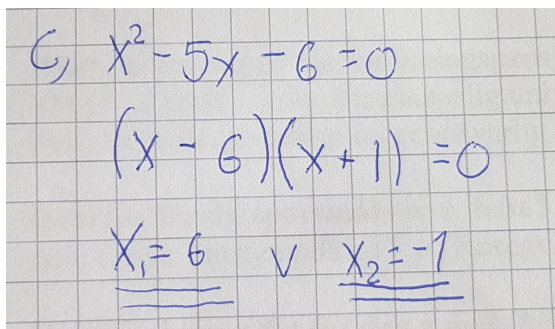 C, x² - 5x - 6 = 0
(x - 6)(x + 1) = 0
x₁ = 6 v x₂ = -1